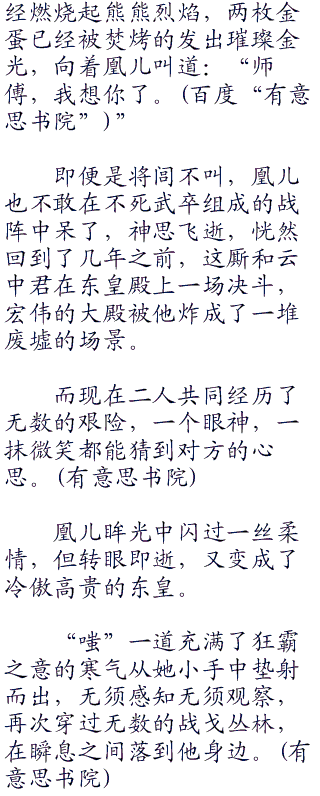 经燃烧起熊熊烈焰，两枚金
蛋已经被焚烤的发出璀璨金
光，向着凰儿叫道：“师
傅，我想你了。(百度“有意
思书院”)”
即便是将闾不叫，凰儿
也不敢在不死武卒组成的战
阵中呆了，神思飞逝，恍然
回到了几年之前，这厮和云
中君在东皇殿上一场决斗，
宏伟的大殿被他炸成了一堆
废墟的场景。
而现在二人共同经历了
无数的艰险，一个眼神，一
抹微笑都能猜到对方的心
思。(有意思书院)
凰儿眸光中闪过一丝柔
情，但转眼即逝，又变成了
冷傲高贵的东皇。
“嗤”一道充满了狂霸
之意的寒气从她小手中垫射
而出，无须感知无须观察，
再次穿过无数的战戈丛林，
在瞬息之间落到他身边。(有
意思书院)